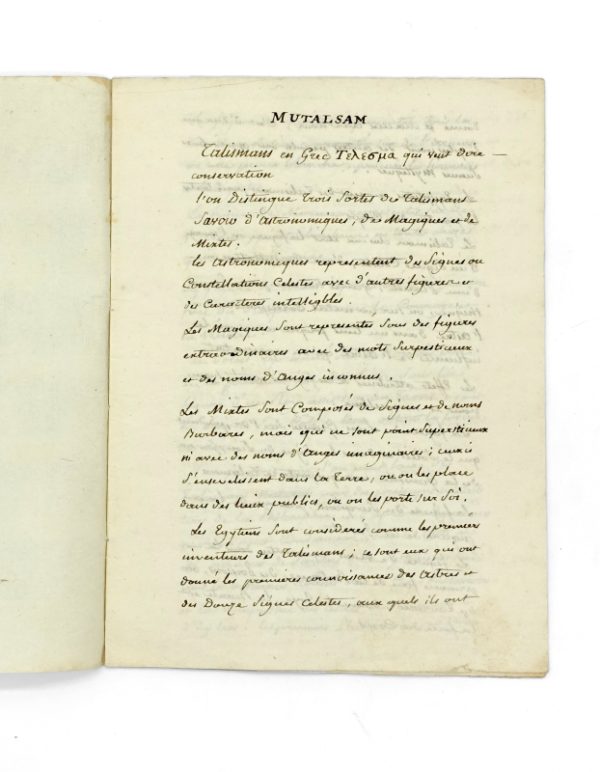 MUTALSAM
Talismans en Grec Τελεσμα qui veut dire —
conservation
l'on Distingue Trois Sortes de Talismans
Savoir d'Astronomiques, de Magiques et de
Mixtes.
les Astronomiques representent des Signes ou
Constellations Celestes avec d'autres figures et
des Caracteres intelligbles.
Les Magiques Sont representés Sous des figures
extraordinaires avec des mots Surpesticieux
et des noms d'Anges inconnus.
Les Mixtes Sont Composés de Signes et de noms
Barbares, mais qui ne Sont point Supersticieux
ni avec des noms d'Anges imaginaires; ceux ci
S'ensevelissent dans la Terre, ou on les place
dans des lieux publics, ou on les porte Sur Soi.
Les Egytiens Sont considerés comme les premiers
inventeurs des Talismans; ce sont eux qui ont
donné les premieres connoissances des Astres et
des Douze Signes Celestes, aux quels ils ont